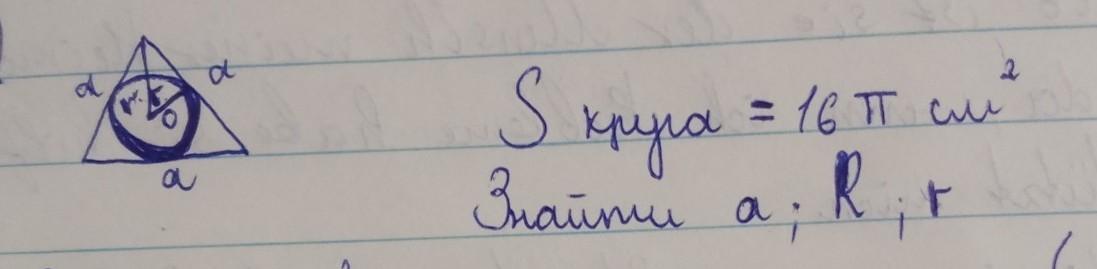 a a
r r
O
a
S круга = 16 π см²
Знайти a ; R ; r